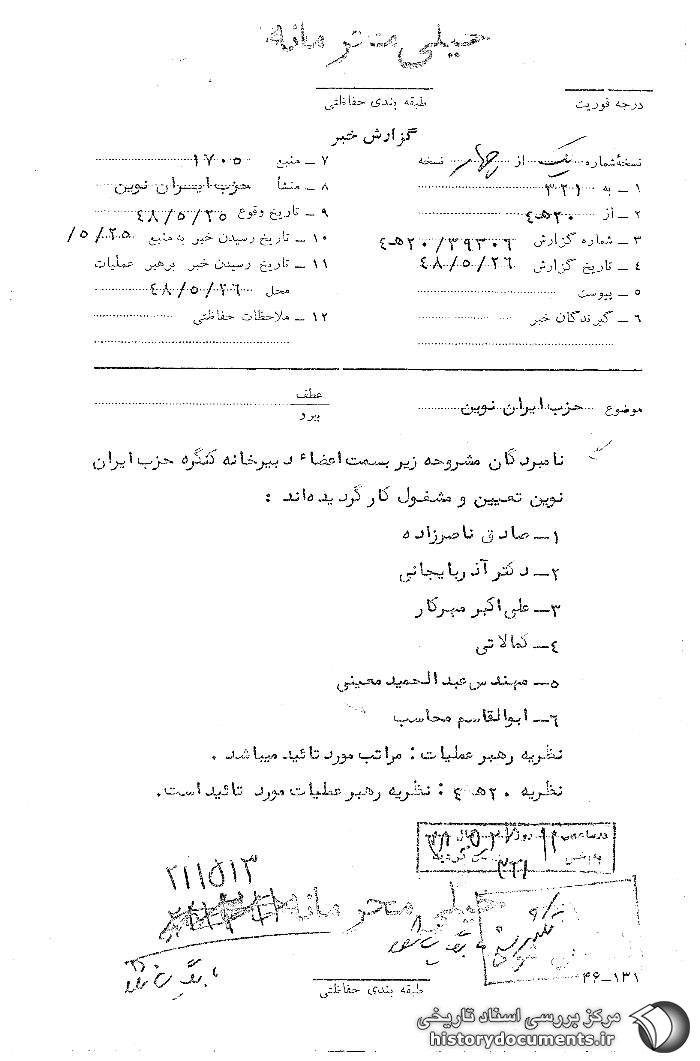 خیلی محرمانه
درجه فوریت
طبقه بندی حفاظتی
گزارش خبر
نسخهٔ شماره یک از چهار نسخه
۱ ـ به ۳۲۱
۲ ـ از ۲۰ ه‍ ٤
۳ ـ شماره گزارش ۳۹۳۰٦ / ۲۰ ه‍ ٤
٤ ـ تاریخ گزارش ٤٨/٥/٢٦
٥ ـ پیوست
٦ ـ گیرندگان خبر
۷ ـ منبع ۱۷۰٥
۸ ـ منشأ حزب ایران نوین
۹ ـ تاریخ وقوع ٤٨/٥/٢٥
۱۰ ـ تاریخ رسیدن خبر به منبع ٢٥/٥/
۱۱ ـ تاریخ رسیدن خبر برهبر عملیات
محل ٤٨/٥/٢٦
۱۲ ـ ملاحظات حفاظتی
موضوع حزب ایران نوین
عطف
پیرو
نامبردگان مشروحه زیر بسمت اعضاء دبیرخانه کنگره حزب ایران
نوین تعیین و مشغول کار گردیده‌اند :
۱ـ صادق ناصرزاده
۲ـ دکتر آذربایجانی
۳ـ علی اکبر میرکار
٤ـ کمالاتی
٥ـ مهندس عبدالحمید معینی
٦ـ ابوالقاسم محاسب
نظریه رهبر عملیات : مراتب مورد تائید میباشد .
نظریه ۲۰ ه‍ ٤ : نظریه رهبر عملیات مورد تائید است.
۲۱۱۵۱۳
خیلی محرمانه
بایگانی شود
بایگانی شود
طبقه بندی حفاظتی
۴۶-۱۳۱
مرکز بررسی اسناد تاریخی
historydocuments.ir